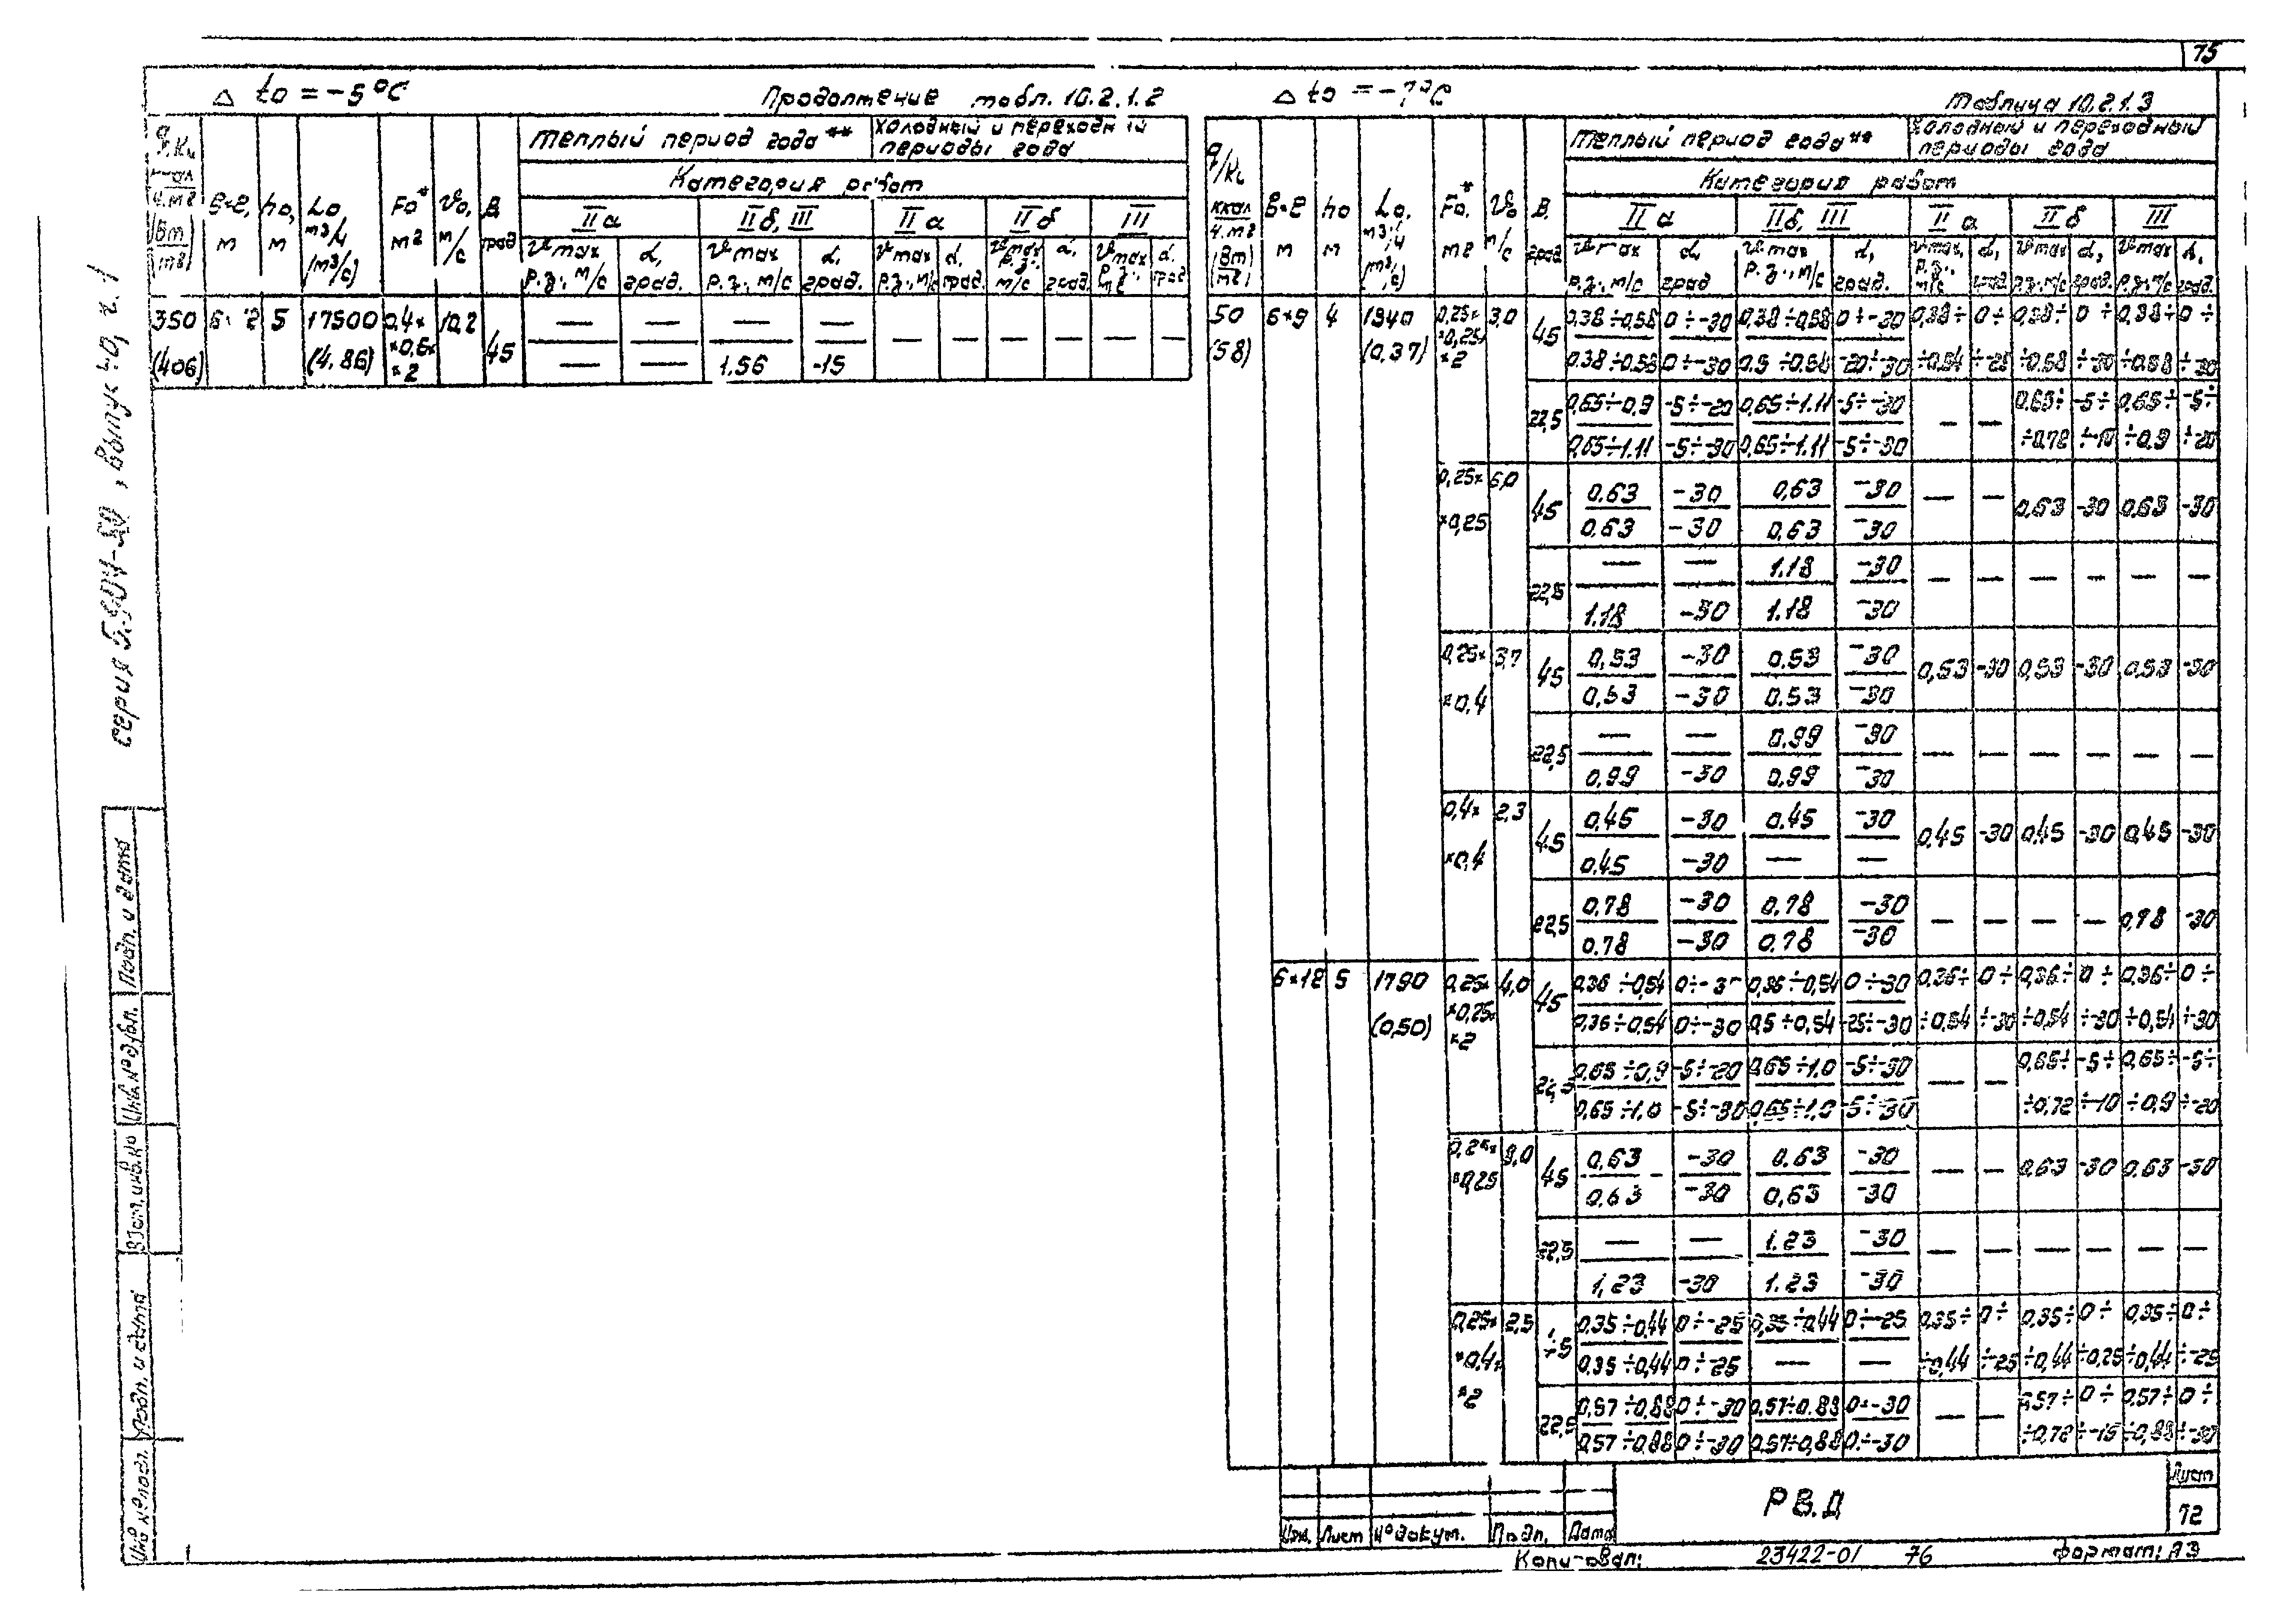 75
Δ to = -5°C
Продолжение табл. 10.2.1.2
тёплый период года** холодный и переходный периоды года
Категория работ
IIа IIб, III IIа IIб III
350 5 17500 0,4× 10,2 — — — —
45 — — — — — —
(406) (4.86) ×0,6× ×2 — — 1.56 -15
Δ to = -7°C
Таблица 10.2.1.3
тёплый период года** холодный и переходный периоды года
Категория работ
IIа IIб, III IIа IIб III
50 6×9 4 1340 0,25× 3,0 45 0,38÷0,58 0÷-30 0,38÷0,58 0÷-30 0,38÷ 0÷ 0,38÷ 0÷ 0,38÷ 0÷
(58) (0,37) ×0,25× ×2 0.38÷0,58 0÷-30 0,5÷0,58 -20÷-30 ÷0,54 ÷-25 ÷0,58 ÷-30 ÷0,58 ÷-30
22,5 0,65÷0,9 -5÷-20 0,65÷1.11 -5÷-30 — — 0,65÷ -5÷ 0,65÷ -5÷
0,65÷1.11 -5÷-30 0,65÷1.11 -5÷-30 ÷0,72 ÷-10 ÷0,9 ÷-20
0,25× 6,0 45 0.63 -30 0,63 -30 — — 0,63 -30 0,63 -30
×0,25 0,63 -30 0,63 -30
22,5 — — 1.18 -30 — — — — — —
1.18 -30 1.18 -30
0,25× 3,7 45 0,53 -30 0.53 -30 0,53 -30 0,53 -30 0,53 -30
×0,4 0,53 -30 0.53 -30
22,5 — — 0,99 -30 — — — — — —
0,99 -30 0,99 -30
0,4× 2,3 45 0,45 -30 0,45 -30 0,45 -30 0,45 -30 0,45 -30
×0,4 0,45 -30 — —
22,5 0,78 -30 0,78 -30 — — — — 0,78 -30
0.78 -30 0.78 -30
6×18 5 1790 0,25× 4,0 45 0,36÷0,54 0÷-3 0,36÷0,54 0÷-30 0,36÷ 0÷ 0,36÷ 0÷ 0,36÷ 0÷
(0,50) ×0,25× ×2 0,36÷0,54 0÷-30 0,5÷0,54 -25÷-30 ÷0,54 ÷-30 ÷0,54 ÷-30 ÷0,54 ÷-30
22,5 0,65÷0,9 -5÷-20 0,65÷1.0 -5÷-30 — — 0,65÷ -5÷ 0,65÷ -5÷
0,65÷1.0 -5÷-30 0,65÷1.0 -5÷-30 ÷0,72 ÷-10 ÷0,9 ÷-20
0,25× 8,0 45 0,63 -30 0.63 -30 — — 0,63 -30 0.63 -30
×0,25 0,63 -30 0,63 -30
22,5 — — 1.23 -30 — — — — — —
1,23 -30 1.23 -30
0,25× 2,5 45 0,35÷0,44 0÷-25 0,35÷0,44 0÷-25 0,35÷ 0÷ 0,35÷ 0÷ 0,35÷ 0÷
×0,4× 0,35÷0,44 0÷-25 — — ÷0,44 ÷-25 ÷0,44 ÷0,25 ÷0,44 ÷-25
×2 22,5 0,57÷0,88 0÷-30 0,57÷0.88 0÷-30 — — 0,57÷ 0÷ 0,57÷ 0÷
0,57÷0,88 0÷-30 0,57÷0,88 0÷-30 ÷0,72 ÷-15 ÷0,88 ÷-30
серия 5.904-50, выпуск 0, ч. 1
Подп. и дата
Инв. № дубл.
Взам. инв. №
Подп. и дата
Инв. № подл.
Изм. Лист № докум. Подп. Дата
РВ.Д
Лист
72
Копировал:
23422-01 76
Формат: А3